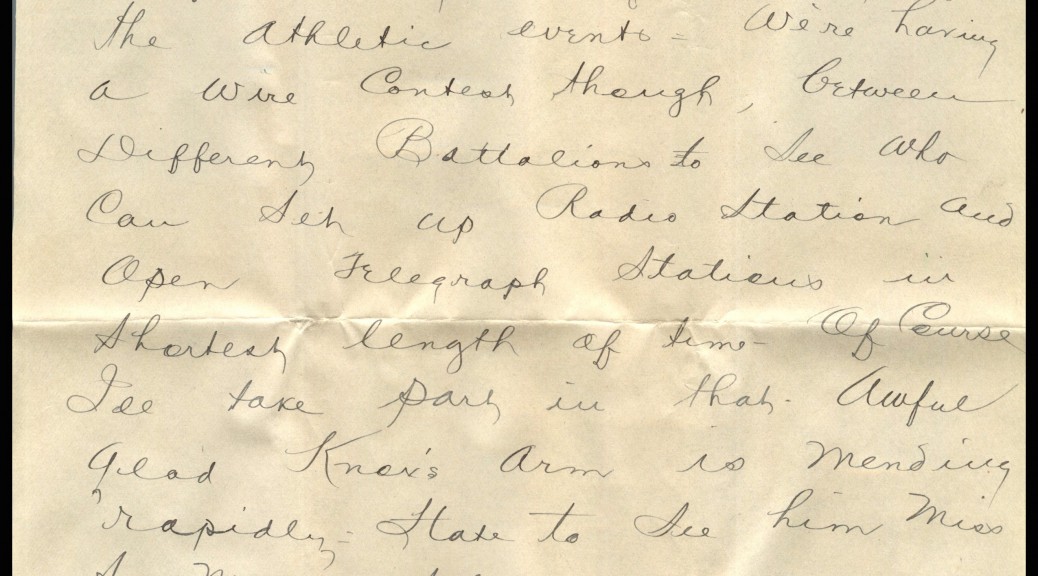 the athletic events = We're having
a Wire Contest though, between
Different Battalions to See Who
Can Set up Radio Station and
Open Telegraph Stations in
Shortest length of time - Of Course
I'll take part in that. Awful
Glad Knox's Arm is Mending
rapidly - Hate to See him Miss